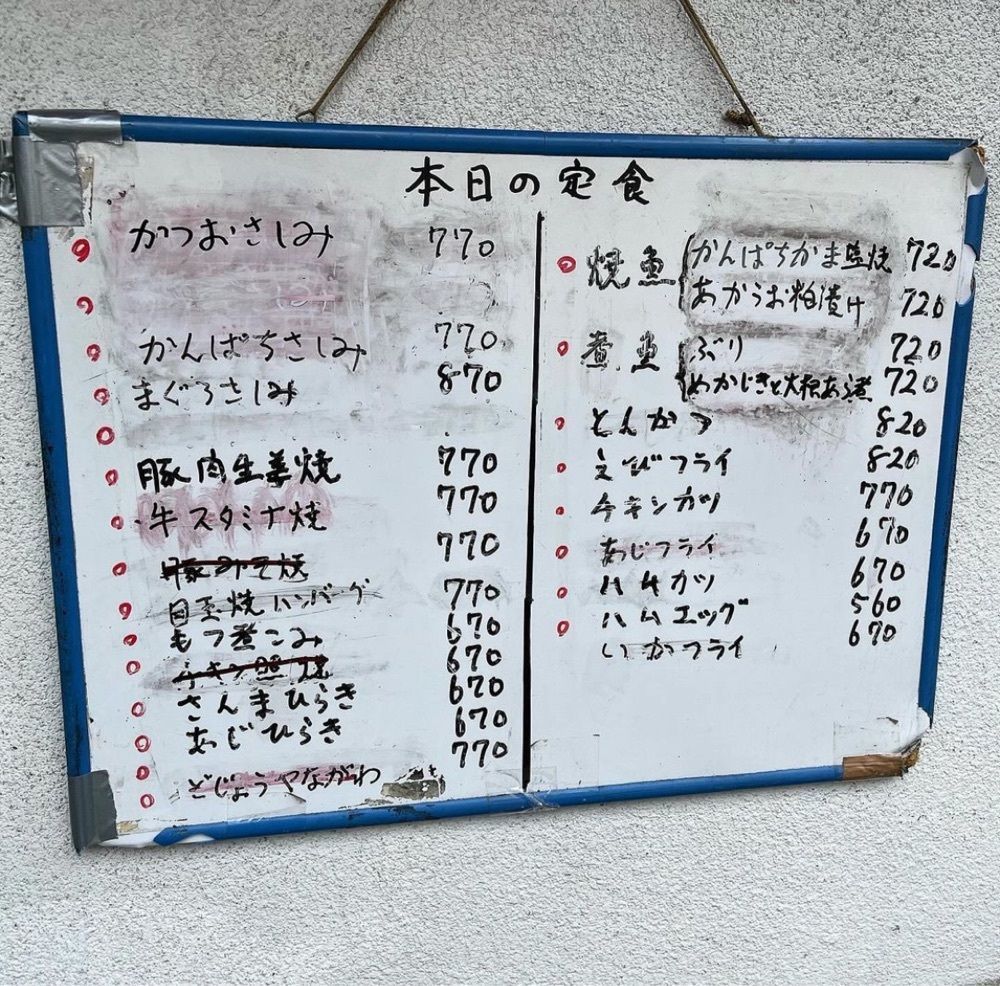 本日の定食
かつおさしみ 770
かんぱちさしみ 770
まぐろさしみ 870
豚肉生姜焼 770
牛スタミナ焼 770
豚みそ焼 770
目玉焼ハンバーグ 770
もつ煮こみ 670
チキン照焼 670
さんまひらき 670
あじひらき 670
どじょうやながわ 770
焼魚 かんぱちかま塩焼 720
あかうお粕漬け 720
煮魚 ぶり 720
めかじきと大根あら煮 720
とんかつ 820
えびフライ 820
チキンカツ 770
あじフライ 670
ハムカツ 670
ハムエッグ 560
いかフライ 670